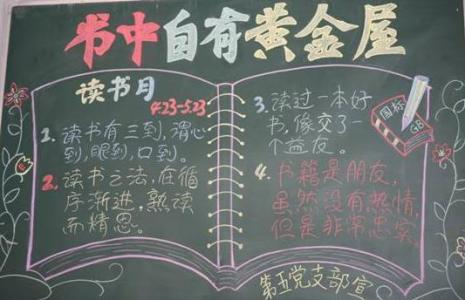 书中自有黄金屋
读书月
4.23-5.23
1. 读书有三到,谓心
到,眼到,口到。
2. 读书之法,在循
序渐进,熟读
而精思。
3. 读过一本好
书,像交了一
个益友。
国标
GB
4. 书籍是朋友,
虽然没有热情,
但是非常忠实。
第五党支部宣